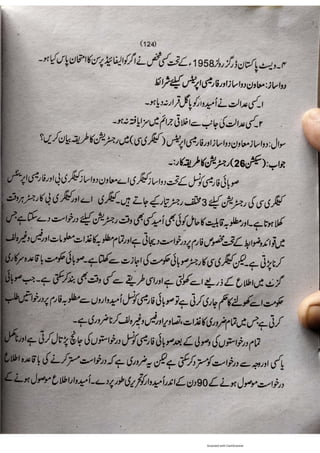 (124)
۴۔ ویسٹ پاکستان ڈرگز رولز 1958ء کے تحت کسی شخص نے اگر کوالیفائیڈ پرسن کا امتحان پاس کیا ہو۔
دواساز: معاون دواساز اور فارمیسی اپرنٹس کیلئے شرائط
۱۔ کسی عدالت نے اُمیدوار کو پاگل قرار نہ دیا ہو۔
۲۔ کسی عدالت کی جانب سے اخلاقی جرائم میں سزا یافتہ نہ ہو۔
سوال: دواساز، معاون دواساز اور فارمیسی اپرنٹس (کیٹگری سی) میں رجسٹریشن کا طریقہ بیان کریں؟
جواب: (سیکشن 26) رجسٹریشن کا طریقہ کار:۔
صوبائی فارمیسی کونسل کے تحت دواساز کیٹگری اے معاون دواساز کیٹگری بی اور فارمیسی اپرنٹس
کیٹگری سی کی رجسٹریشن کیلئے 3 مختلف رجسٹر تیار کیے جاتے ہیں۔ کیٹگری اے اور کیٹگری بی کا رجسٹر ہر وقت
کھلا ہوتا ہے۔ اور مطلوبہ قابلیت کا حامل کوئی بھی اُمید کسی بھی وقت رجسٹریشن کیلئے درخواست دے سکتا ہے جس
میں قوائد و ضوابط کے تحت مخصوص فارم پر درخواست دی جاتی ہے اور تمام مطلوبہ کاغذات معلومات اور فیس وغیرہ لف
کرنا پڑتی ہے۔ لیکن کیٹگری سی کا رجسٹر صوبائی حکومت کی اجازت سے کھلتا ہے۔ صوبائی حکومت باقاعدہ سرکاری
گزٹ میں اطلاع کے ذریعے اسے کھولتی ہے اور اسی طریقے سے کسی وقت بھی بند کر سکتی ہے۔ جب صوبائی
حکومت اسے کھولنے کا حکم جاری کرتی ہے تو صوبائی فارمیسی کونسل اُمیدواروں سے مطلوبہ فارم پر درخواستیں طلب
کرتی ہے جس میں تمام ضروری کاغذات، تصاویر اور فیس وغیرہ لف کرنا ضروری ہے۔
تمام درخواستوں کی وصولی کے بعد صوبائی فارمیسی کونسل درخواستوں کی جانچ پڑتال کرتی ہے اور نامکمل
یا کسی اور وجہ سے درخواست کو مسترد کر سکتی ہے لیکن یہ ضروری ہے کہ درخواست مسترد کرنے کی باقاعدہ اطلاع
درخواست موصول ہونے کے 90 دن کے اندر اُمیدوار کو تحریری طور پر دے۔ اُمیدوار اطلاع موصول ہونے کے
Scanned with CamScanner